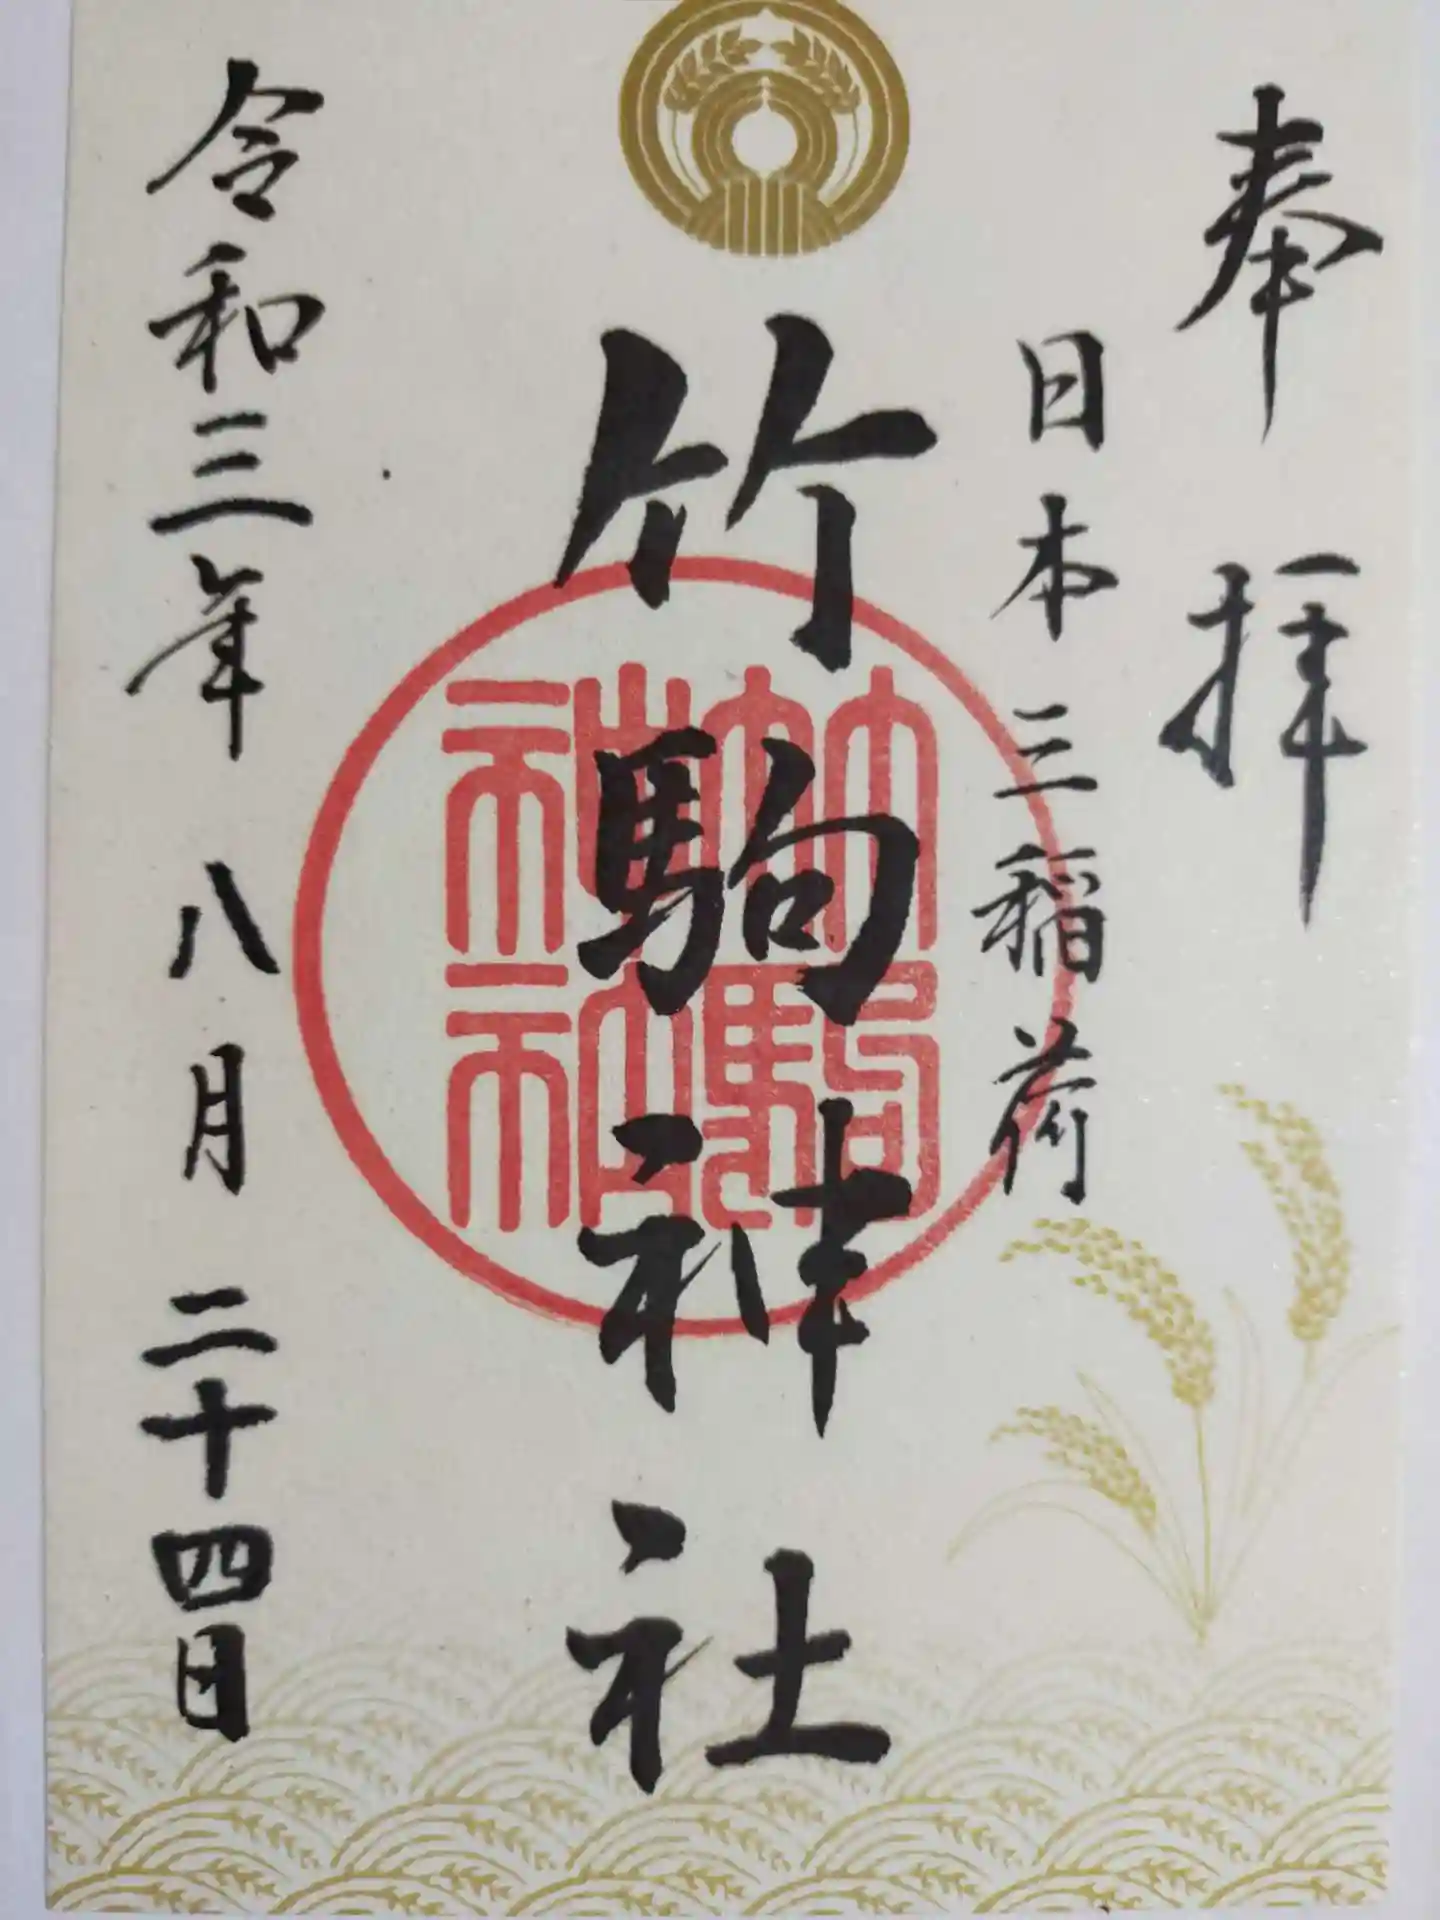 奉拝
日本三稲荷
竹駒神社
竹駒
神社
令和三年 八月 二十四日